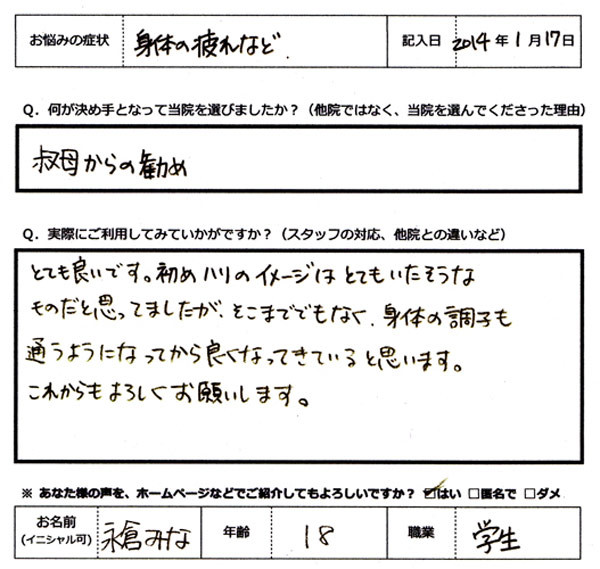 お悩みの症状 身体の疲れなど. 記入日 2014年1月17日
Q．何が決め手となって当院を選びましたか？（他院ではなく、当院を選んでくださった理由）
叔母からの勧め
Q．実際にご利用してみていかがですか？（スタッフの対応、他院との違いなど）
とても良いです。初めハリのイメージはとてもいたそうな
ものだと思ってましたが、そこまででもなく、身体の調子も
通うようになってから良くなってきていると思います。
これからもよろしくお願いします。
※ あなた様の声を、ホームページなどでご紹介してもよろしいですか？ ☑はい □匿名で □ダメ
お名前 永倉みな 年齢 18 職業 学生
(イニシャル可)